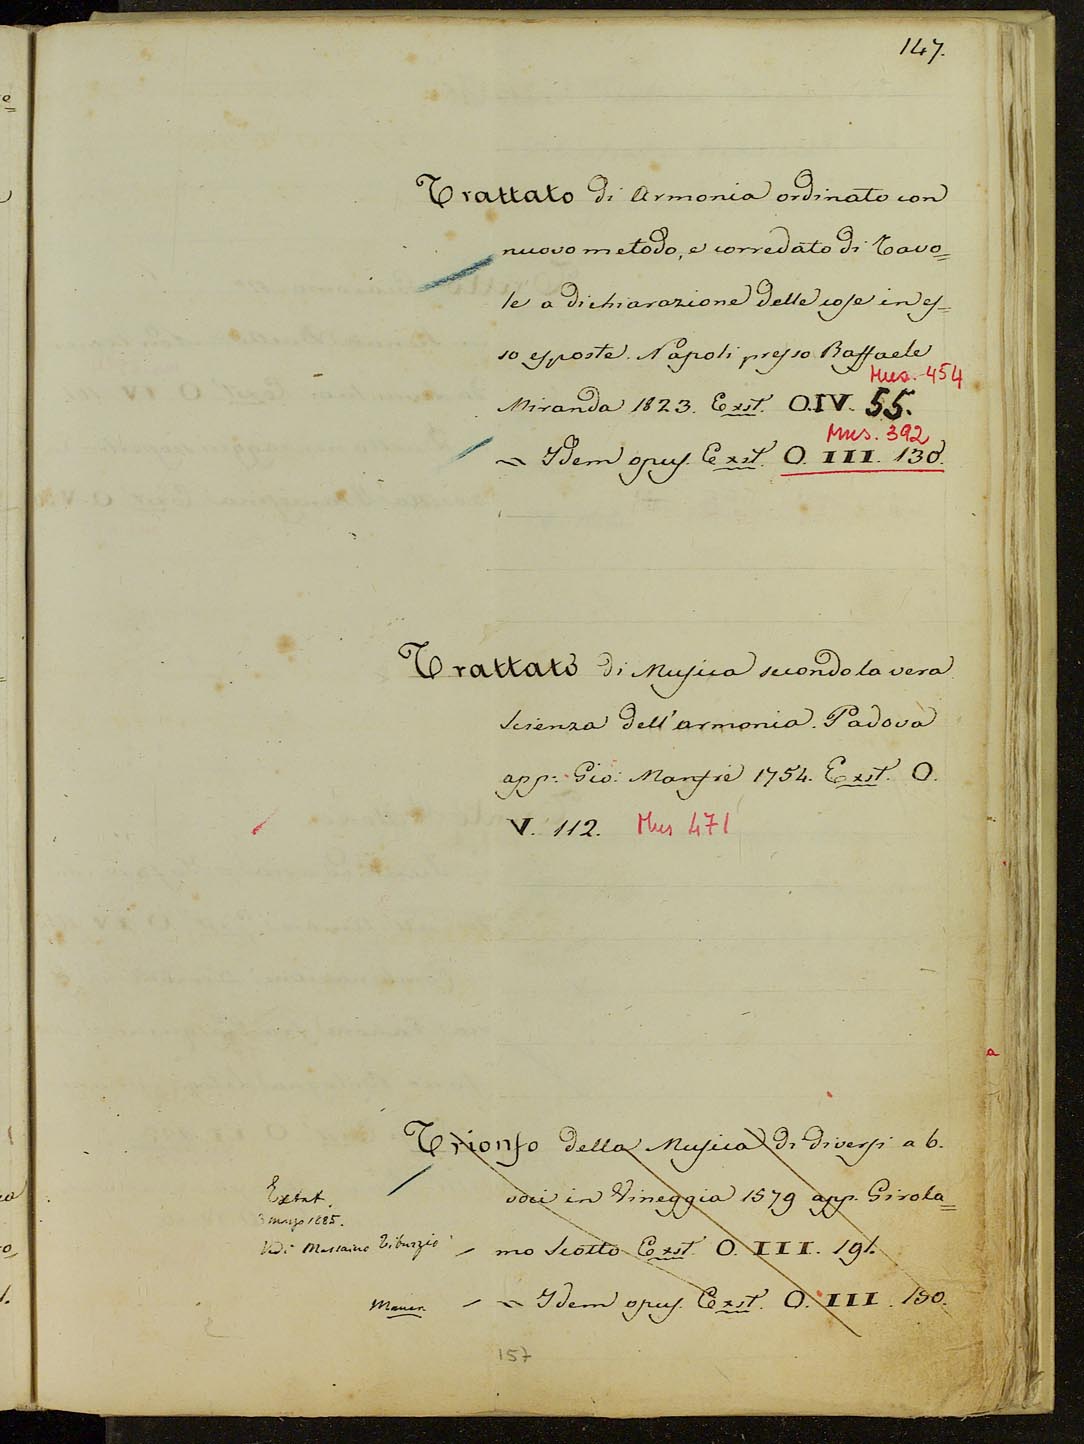 147.
Trattato di Armonia ordinato con
nuovo metodo, e corredato di Tavo=
le a dichiarazione delle cose in es=
so esposte. Napoli presso Raffaele
Mus. 454
Miranda 1823. Exst. O.IV. 55.
Mus. 392
~ Idem opus. Exst. O. III. 130.
Trattato di Musica secondo la vera
Scienza dell'armonia. Padova
app: Gio: Manfrè 1754. Exst. O.
V. 112. Mus 471
Trionfo della Musica di diversi a 6.
Extat. voci in Vineggia 1579 app. Girola=
3 marzo 1885.
Vedi Massaino Tiburzio - mo Scotto Exst. O. III. 191.
- ~ Idem opus. Exst. O. III. 190.
157